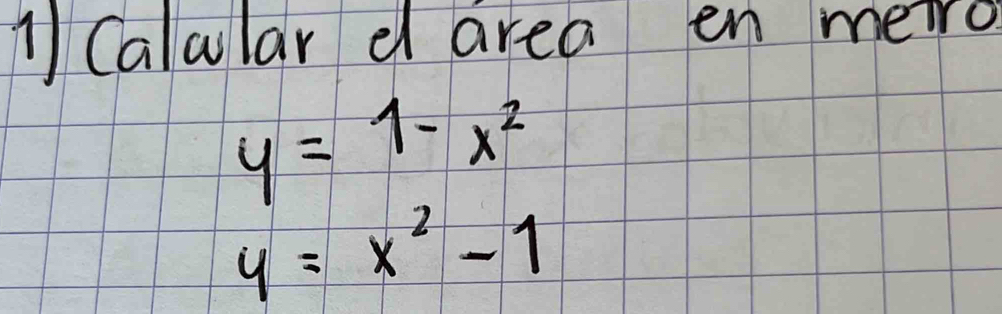 1) Calcular el área en metro
y = 1 - x²
y = x² - 1